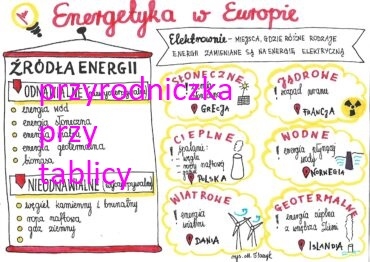 Energetyka w Europie
Elektrownie - MIEJSCA, GDZIE RÓŻNE RODZAJE
ENERGII ZAMIENIANE SĄ NA ENERGIĘ ELEKTRYCZNĄ
ŹRÓDŁA ENERGII
ODNAWIALNE
energia wód
energia słoneczna
energia wiatru
energia geotermalna
biomasa
NIEODNAWIALNE
węgiel kamienny i brunatny
ropa naftowa
gaz ziemny
przyrodniczka
przy
tablicy
SŁONECZNE
GRECJA
JĄDROWE
rozpad uranu
FRANCJA
CIEPLNE
spalanie:
- węgla
- ropy naftowej
- gazu
POLSKA
WODNE
energia płynącej
wody
NORWEGIA
WIATROWE
energia
wiatru
DANIA
GEOTERMALNE
energia ciepła
z wnętrza Ziemi
ISLANDIA